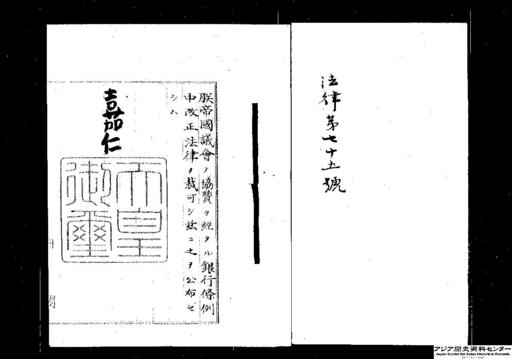 法律第七十五號
朕帝國議會ノ協賛ヲ經タル銀行條例
中改正法律ヲ裁可シ茲ニ之ヲ公布セ
シム
嘉仁
天皇
御璽
アジア歴史資料センター
Japan Center for Asian Historical Records